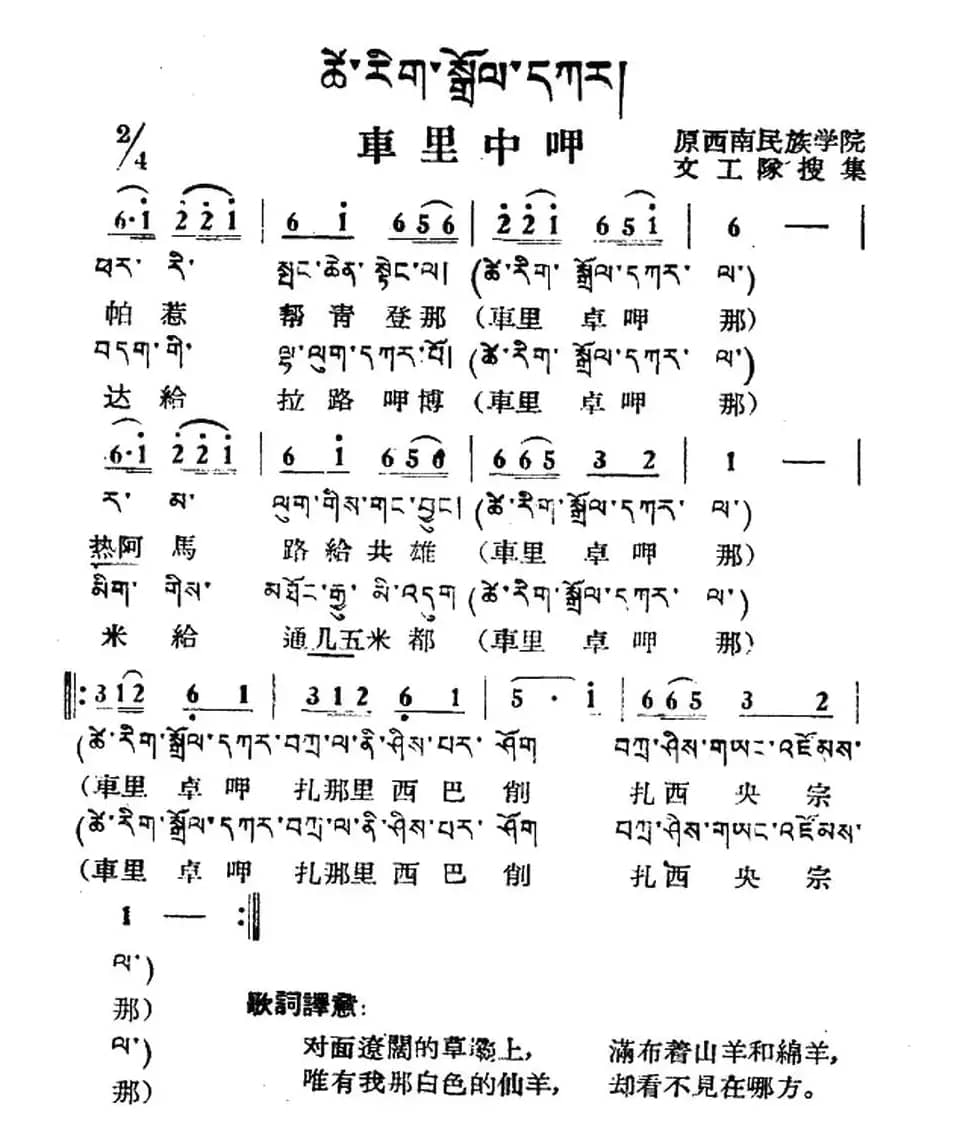 ཚེ་རིག་སྒྲོལ་དཀར།
車里中呷
2/4
原西南民族学院
文工隊搜集
6·i 2 2 i | 6 i 6 5 6 | 2 2 i 6 5 i | 6 — |
ཕར་ རི་ སྤང་ཆེན་སྟེང་ལ། (ཚེ་རིག་སྒྲོལ་དཀར་ ལ་)
帕惹 帮青登那 (車里 卓呷 那)
བདག་གི་ ལྷ་ལུག་དཀར་པོ། (ཚེ་རིག་སྒྲོལ་དཀར་ ལ་)
达給 拉路呷博 (車里 卓呷 那)
6·i 2 2 i | 6 i 6 5 6 | 6 6 5 3 2 | 1 — |
ར་ མ་ ལུག་གིས་གང་བྱུང། (ཚེ་རིག་སྒྲོལ་དཀར་ ལ་)
热阿馬 路給共雄 (車里 卓呷 那)
མིག་ གིས་ མཐོང་རྒྱུ་མི་འདུག (ཚེ་རིག་སྒྲོལ་དཀར་ ལ་)
米給 通几五米都 (車里 卓呷 那)
‖: 3 1 2 6 1 | 3 1 2 6 1 | 5 · i | 6 6 5 3 2 |
(ཚེ་རིག་སྒྲོལ་དཀར་བཀྲ་ལ་ནི་ཤིས་པར་ཤོག བཀྲ་ཤིས་གཡང་འཛོམས་
(車里卓呷 扎那里西巴削 扎西央宗
(ཚེ་རིག་སྒྲོལ་དཀར་བཀྲ་ལ་ནི་ཤིས་པར་ཤོག བཀྲ་ཤིས་གཡང་འཛོམས་
(車里卓呷 扎那里西巴削 扎西央宗
1 — :‖
ལ་)
那)
ལ་)
那)
歌詞譯意:
对面遼闊的草灞上, 滿布着山羊和綿羊,
唯有我那白色的仙羊, 却看不見在哪方。